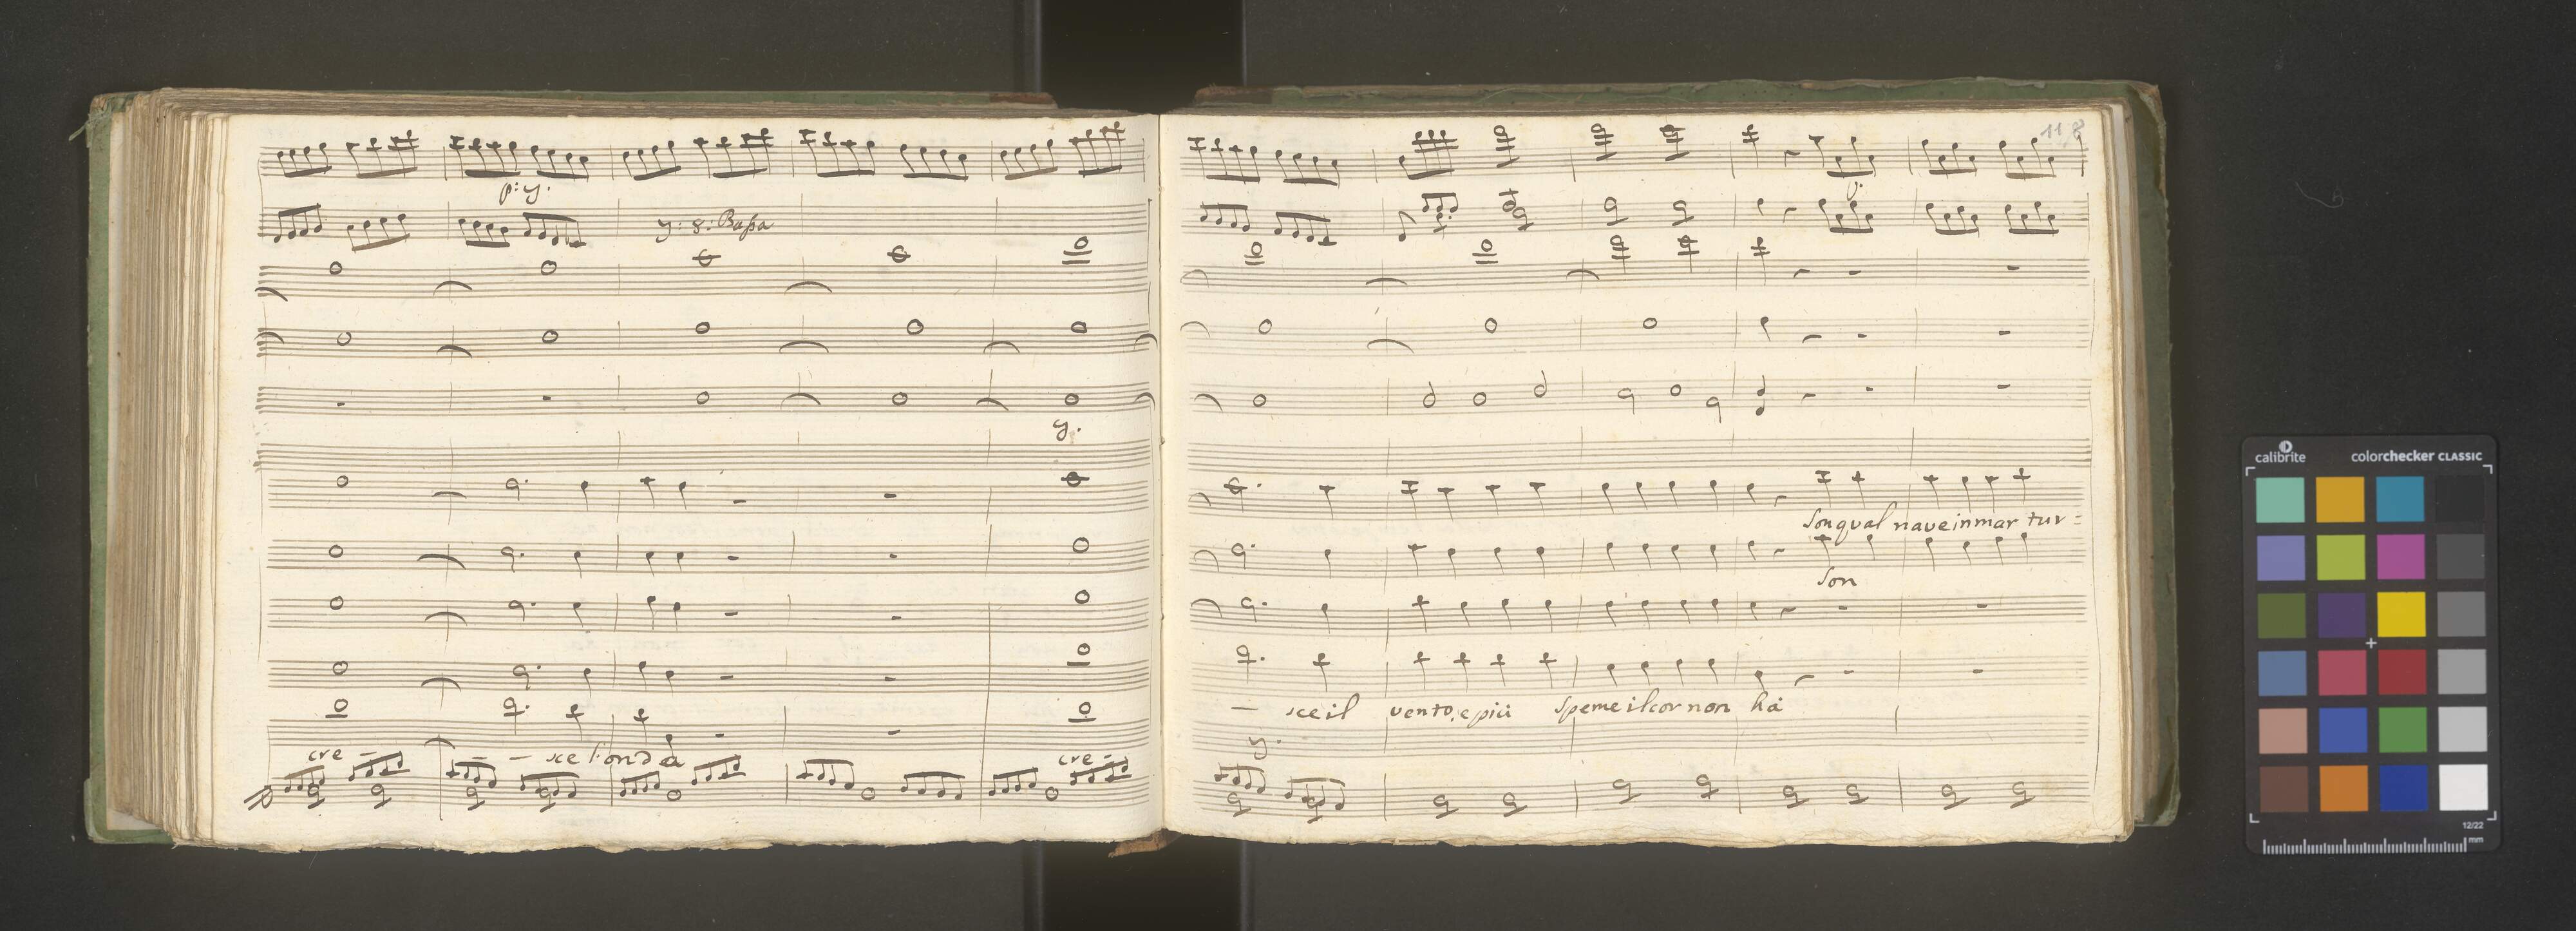 118
p: y.
y: 8: Bassa
y.
y.
Son qual nave in mar tur=
Son
cre - - - sce l'onda
cre -
- sce il vento, e più speme il cor non hà
y.
calibrite colorchecker CLASSIC
12/22
mm